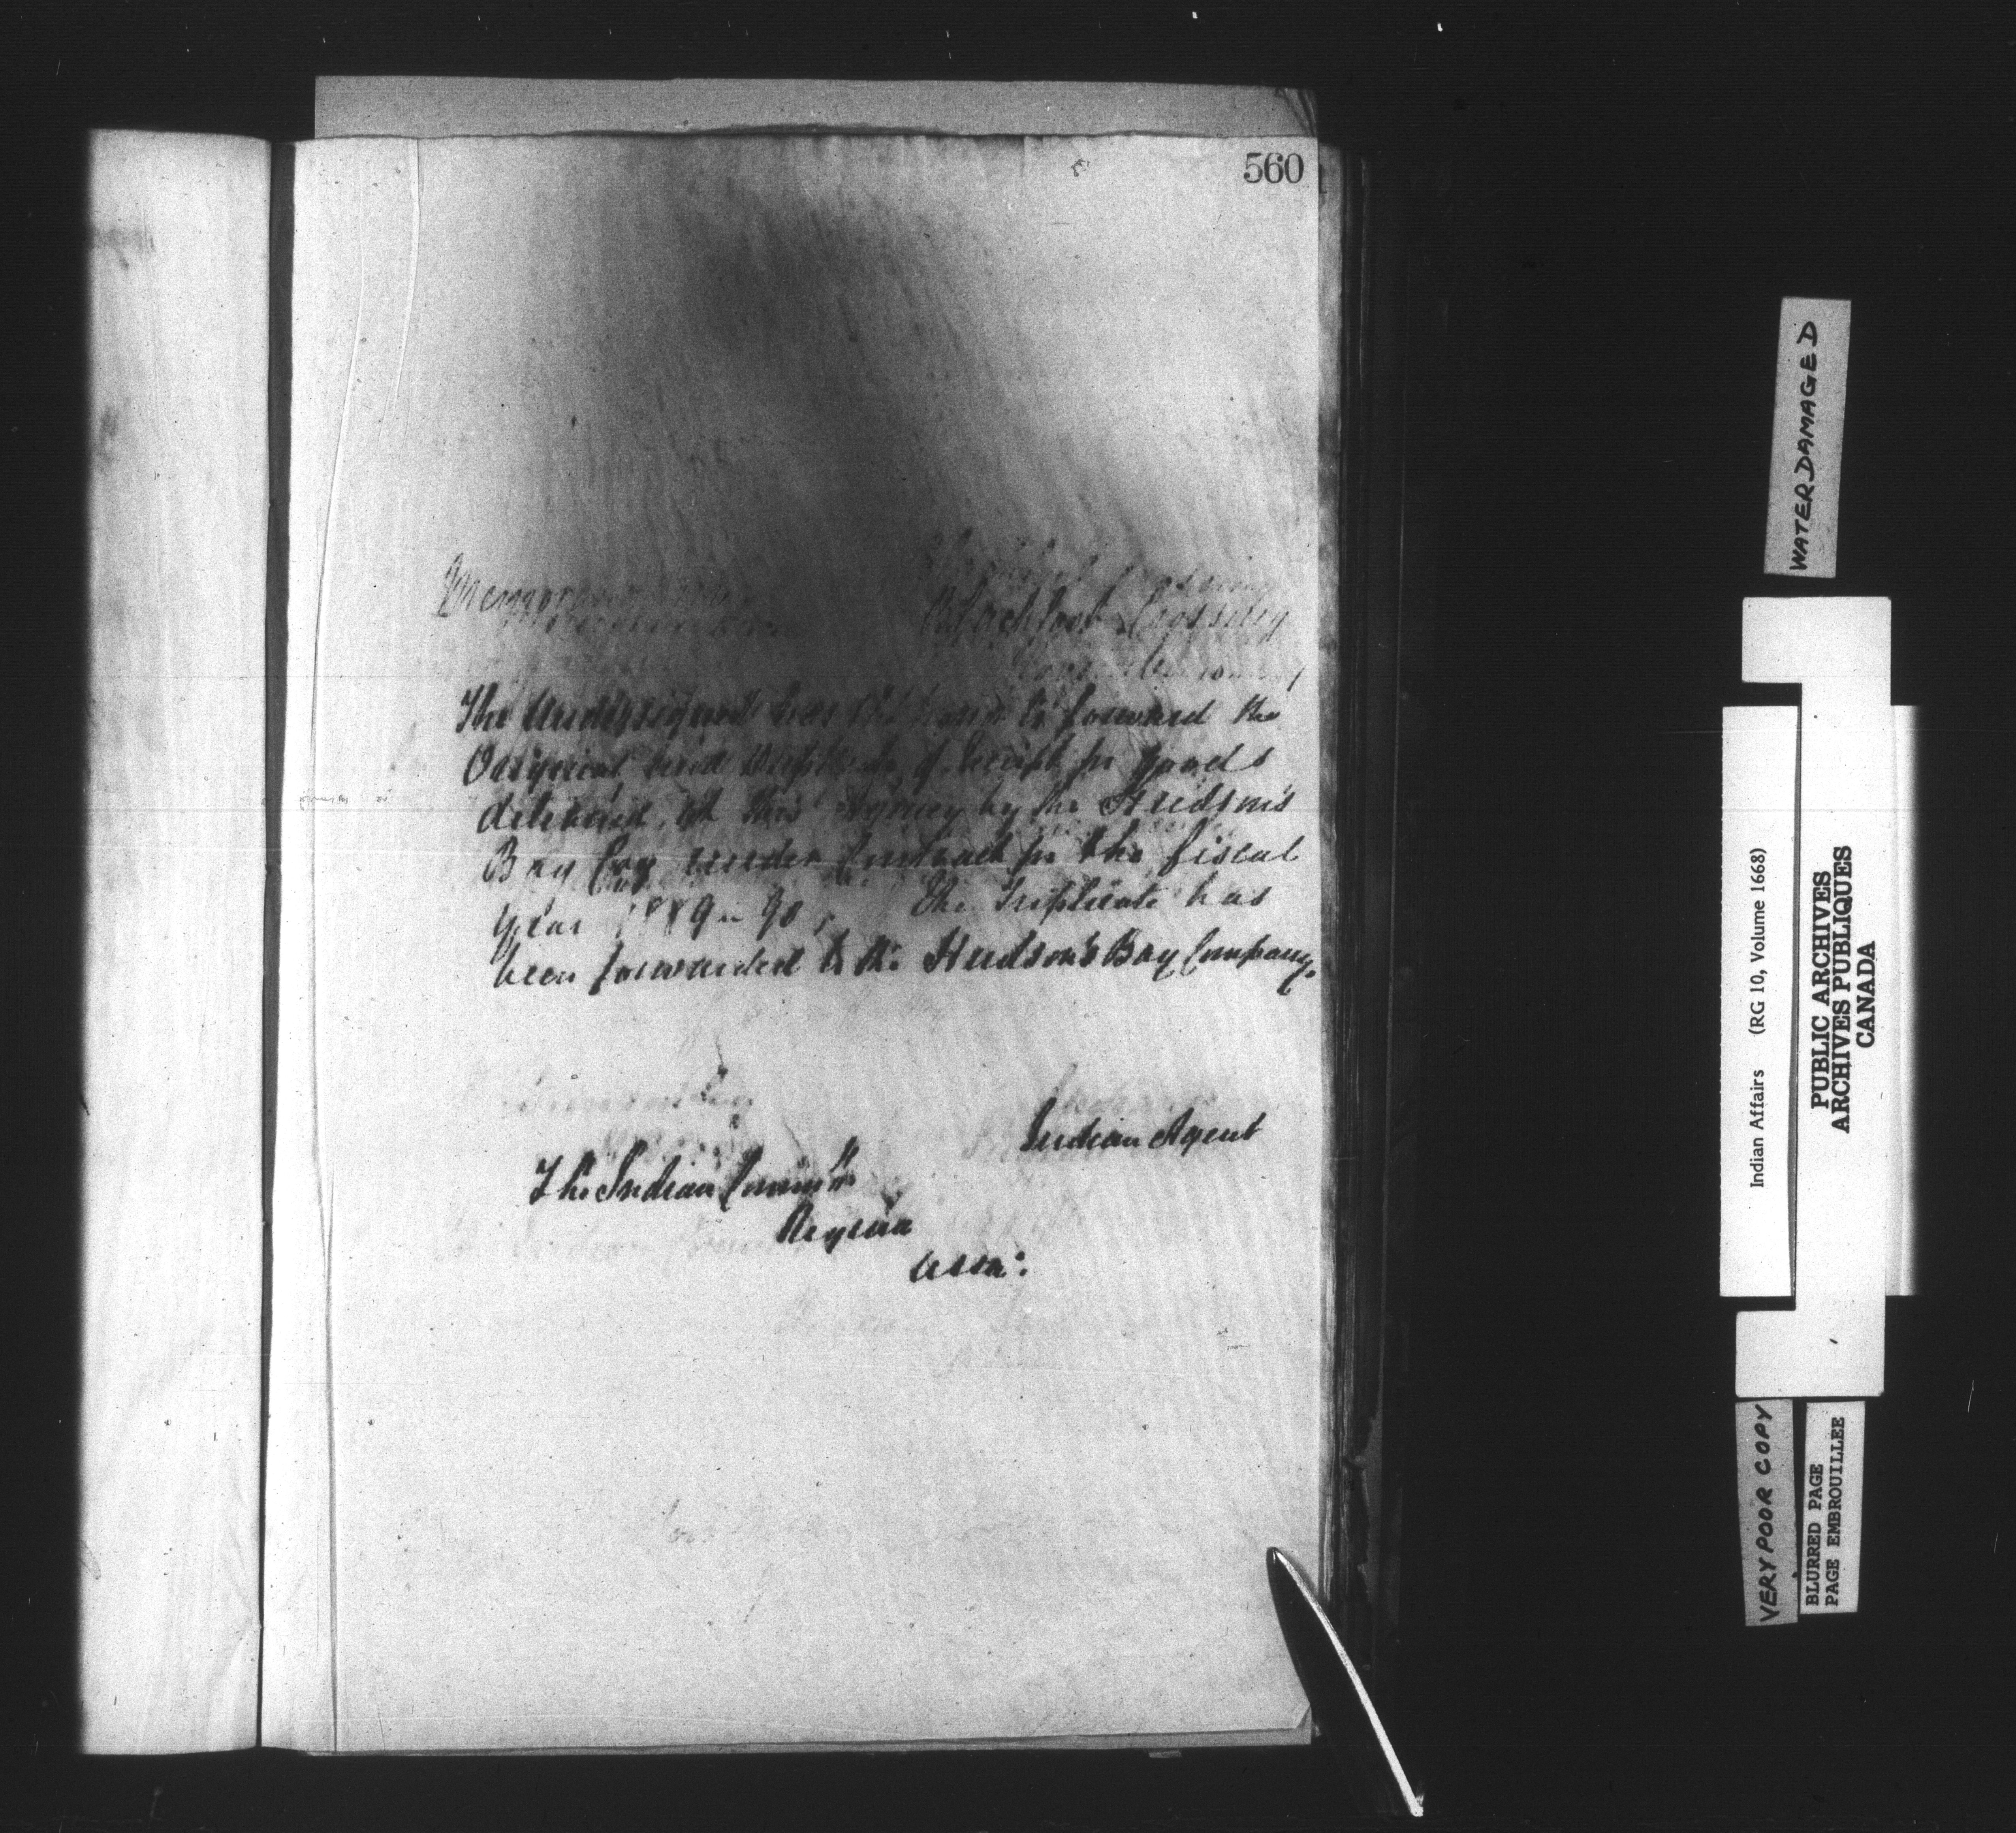 560
Memorandum
Blackfoot Crossing
The Undersigned has the honor to forward the
Original and Duplicate of receipt for goods
delivered at this Agency by the Hudson's
Bay Coy under Contract for the fiscal
year 1889 - 90, The Triplicate has
been forwarded to the Hudson's Bay Company.
Indian Agent
The Indian Commr
Regina
Assa:
WATER DAMAGED
Indian Affairs (RG 10, Volume 1668)
PUBLIC ARCHIVES
ARCHIVES PUBLIQUES
CANADA
VERY POOR COPY
BLURRED PAGE
PAGE EMBROUILLEE